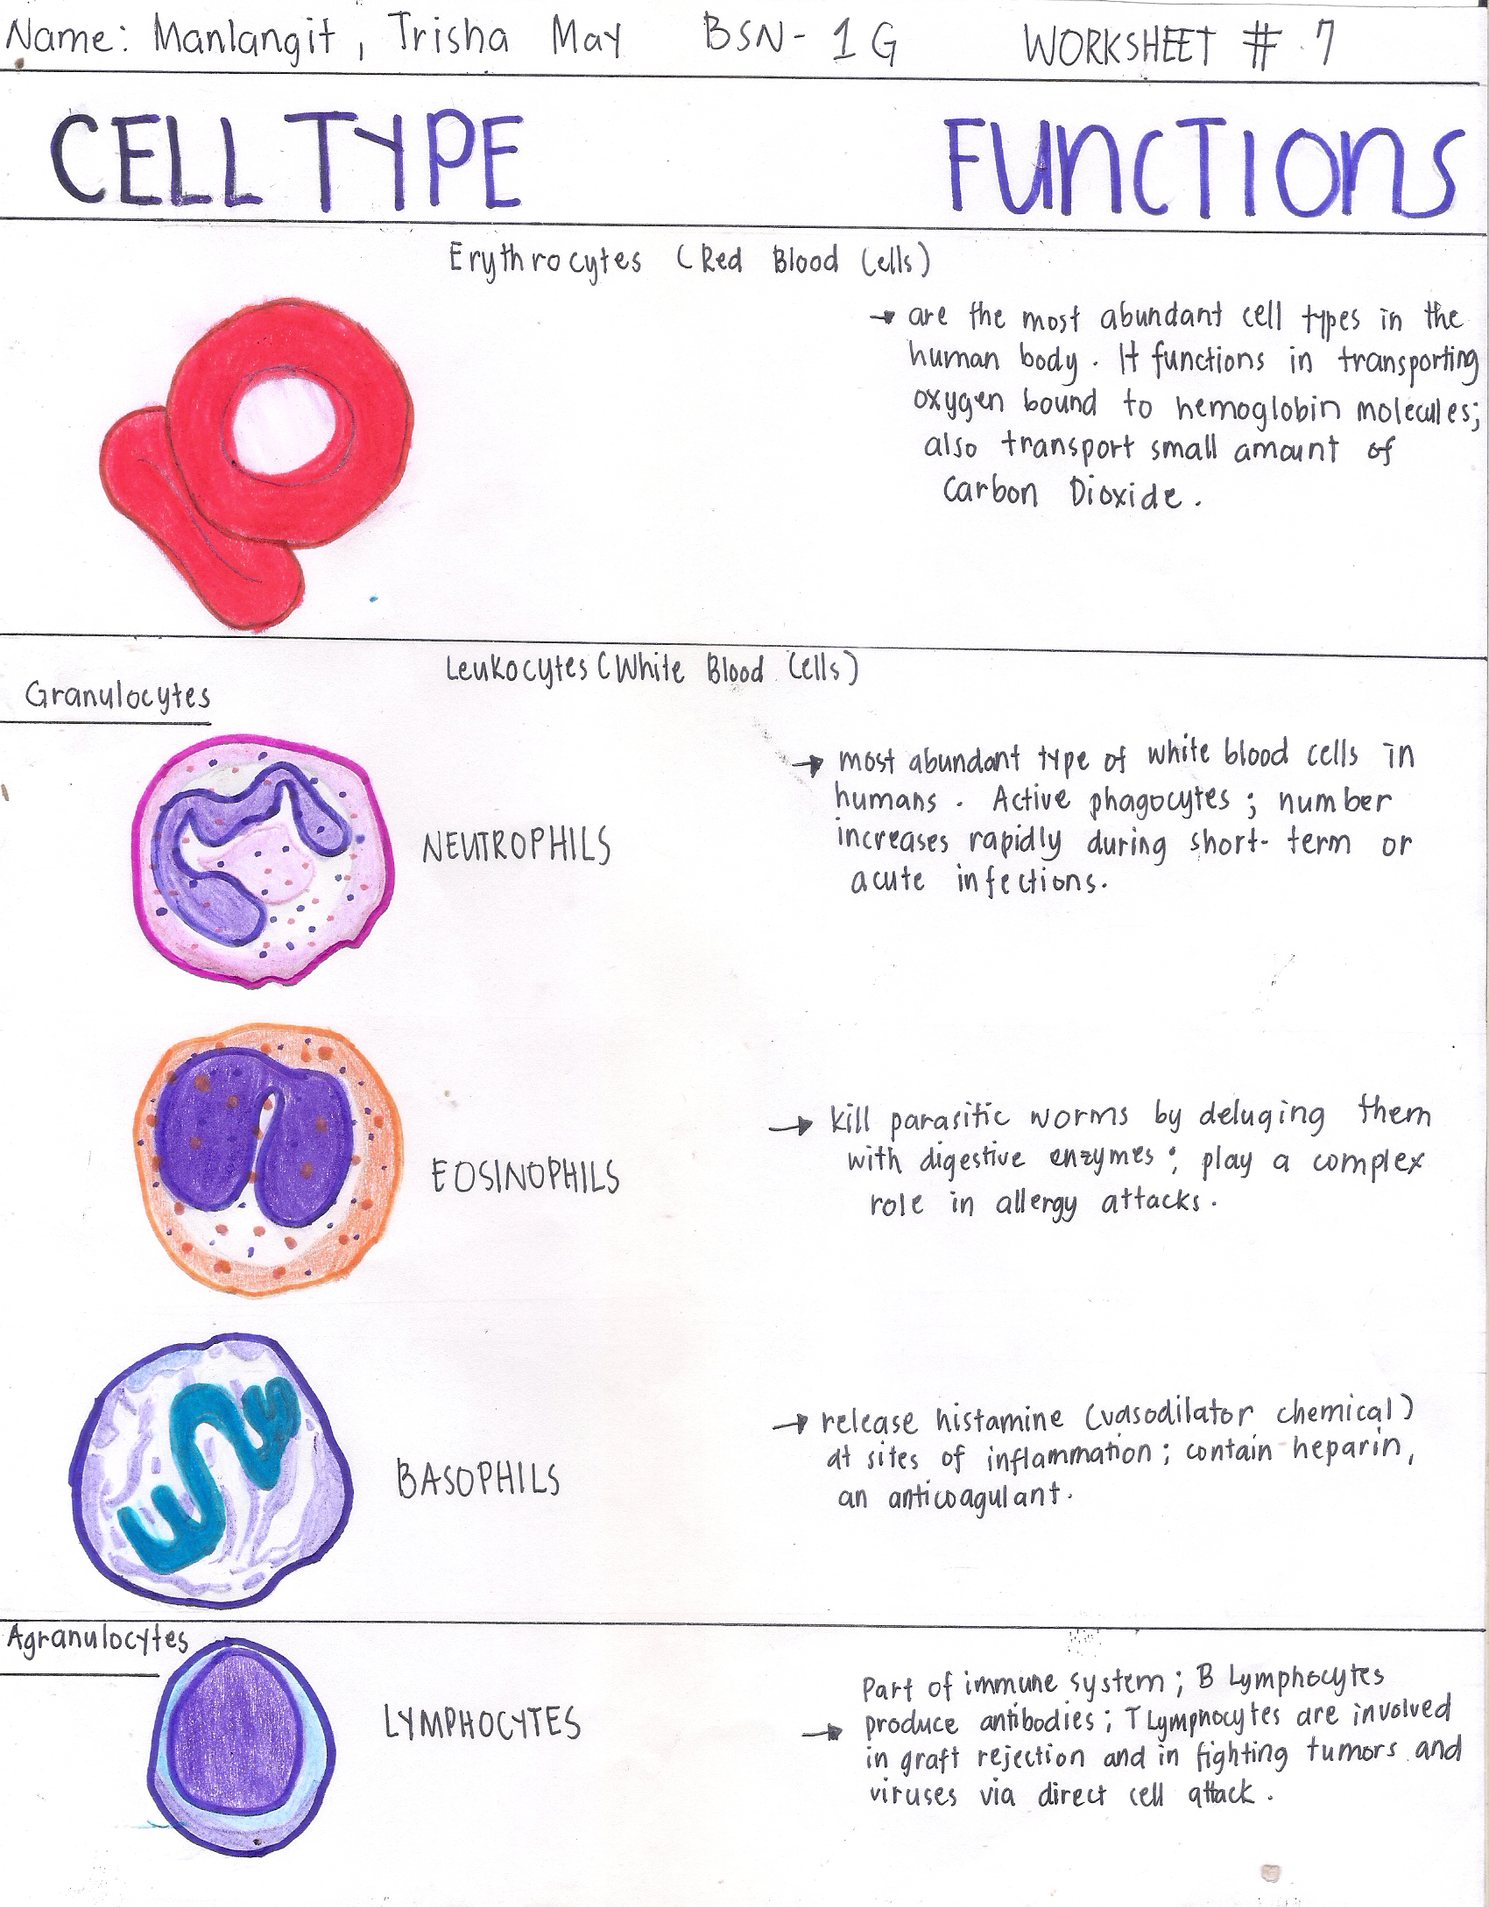 Name: Manlangit, Trisha May BSN-1G WORKSHEET # 7
CELL TYPE FUNCTIONS
Erythrocytes (Red Blood Cells)
→ are the most abundant cell types in the
human body. It functions in transporting
oxygen bound to hemoglobin molecules;
also transport small amount of
Carbon Dioxide.
Leukocytes (White Blood Cells)
Granulocytes
NEUTROPHILS
→ most abundant type of white blood cells in
humans. Active phagocytes; number
increases rapidly during short-term or
acute infections.
EOSINOPHILS
→ kill parasitic worms by deluging them
with digestive enzymes; play a complex
role in allergy attacks.
BASOPHILS
→ release histamine (vasodilator chemical)
at sites of inflammation; contain heparin,
an anticoagulant.
Agranulocytes
LYMPHOCYTES
→ Part of immune system; B Lymphocytes
produce antibodies; T Lymphocytes are involved
in graft rejection and in fighting tumors and
viruses via direct cell attack.